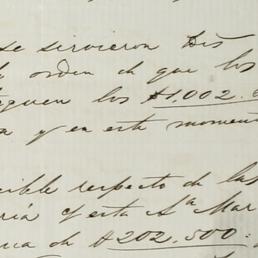 se sirvieron Dis
orden de que los
guen los $1,002.
a y en este moment
cible respecto de las
ría y esta Aª Mar
ca de $202.500: